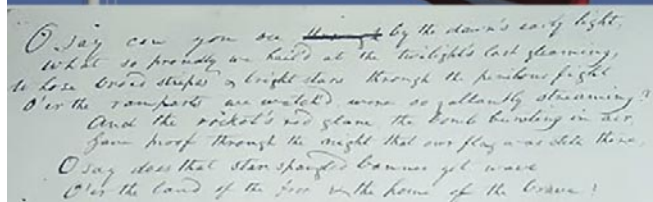 O say can you see ~~through~~ by the dawn's early light,
What so proudly we hail'd at the twilight's last gleaming,
Whose broad stripes & bright stars through the perilous fight
O'er the ramparts we watch'd, were so gallantly streaming?
And the rocket's red glare, the bomb bursting in air,
Gave proof through the night that our flag was still there,
O say does that star spangled banner yet wave
O'er the land of the free & the home of the brave!